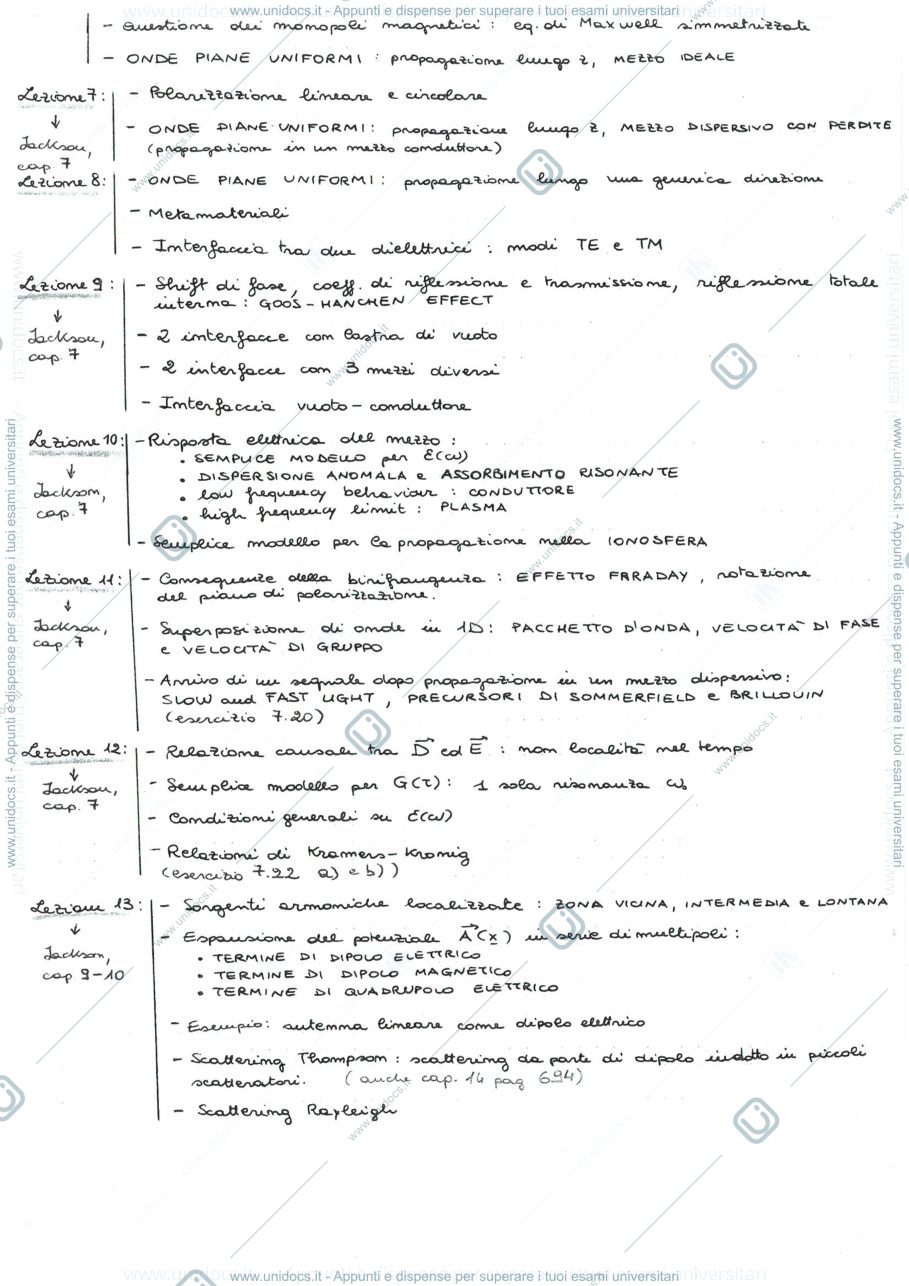 www.unidocs.it - Appunti e dispense per superare i tuoi esami universitari
- Questione dei monopoli magnetici : eq. di Maxwell simmetrizzate
- ONDE PIANE UNIFORMI : propagazione lungo z, MEZZO IDEALE
Lezione 7: - Polarizzazione lineare e circolare
↓
Jackson, cap. 7
- ONDE PIANE UNIFORMI: propagazione lungo z, MEZZO DISPERSIVO CON PERDITE
(propagazione in un mezzo conduttore)
Lezione 8: - ONDE PIANE UNIFORMI: propagazione lungo una generica direzione
- Metamateriali
- Interfaccia tra due dielettrici : modi TE e TM
Lezione 9: - Shift di fase, coeff. di riflessione e trasmissione, riflessione totale
interna : GOOS-HANCHEN EFFECT
↓
Jackson, cap. 7
- 2 interfacce con lastra di vuoto
- 2 interfacce con 3 mezzi diversi
- Interfaccia vuoto-conduttore
Lezione 10: - Risposta elettrica del mezzo :
• SEMPLICE MODELLO per ε(ω)
• DISPERSIONE ANOMALA e ASSORBIMENTO RISONANTE
↓
Jackson, cap. 7
• low frequency behaviour : CONDUTTORE
• high frequency limit : PLASMA
- Semplice modello per la propagazione nella IONOSFERA
Lezione 11: - Conseguenze della birifrangenza : EFFETTO FARADAY, rotazione
del piano di polarizzazione.
↓
Jackson, cap. 7
- Superposizione di onde in 1D: PACCHETTO D'ONDA, VELOCITÀ DI FASE
e VELOCITÀ DI GRUPPO
- Arrivo di un segnale dopo propagazione in un mezzo dispersivo:
SLOW and FAST LIGHT, PRECURSORI DI SOMMERFIELD e BRILLOUIN
(esercizio 7.20)
Lezione 12: - Relazione causale tra D⃗ ed E⃗ : non località nel tempo
↓
Jackson, cap. 7
- Semplice modello per G(τ): 1 sola risonanza ω₀
- Condizioni generali su ε(ω)
- Relazioni di Kramers-Kronig
(esercizio 7.22 a) e b))
Lezione 13: - Sorgenti armoniche localizzate : ZONA VICINA, INTERMEDIA e LONTANA
↓
Jackson, cap 9-10
- Espansione del potenziale A⃗(x) in serie di multipoli :
• TERMINE DI DIPOLO ELETTRICO
• TERMINE DI DIPOLO MAGNETICO
• TERMINE DI QUADRUPOLO ELETTRICO
- Esempio: antenna lineare come dipolo elettrico
- Scattering Thompson : scattering da parte di dipolo indotto in piccoli
scatteratori. (anche cap. 14 pag 694)
- Scattering Rayleigh
www.unidocs.it - Appunti e dispense per superare i tuoi esami universitari